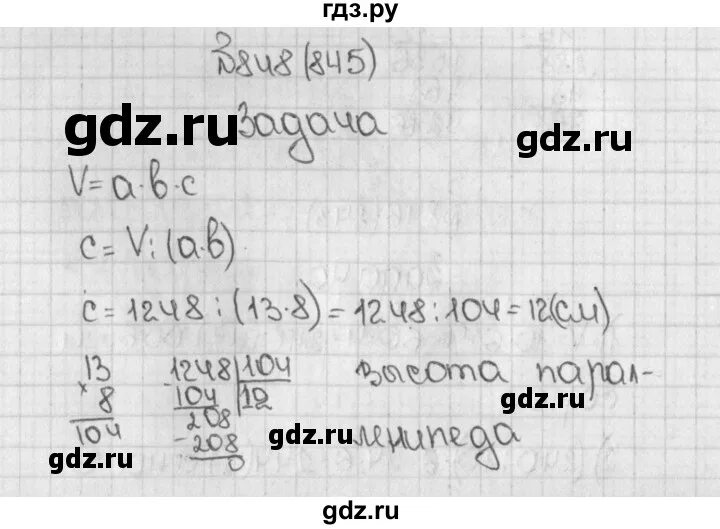 гдз.ру
№848 (845)
gdz.ru
Задача
gdz.ru
V = a·b·c
c = V : (a·b)
gdz.ru
c = 1248 : (13·8) = 1248 : 104 = 12(см)
13
× 8
104
1248 | 104
- 104 | 12
208
- 208
0
высота парал-
ленипеда
gdz.ru
gdz.ru
gdz.ru